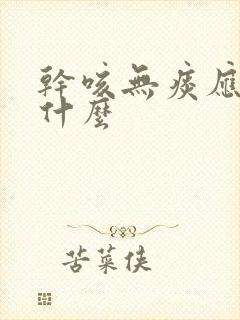 幹咳無痰應
什麼
苦菜俠